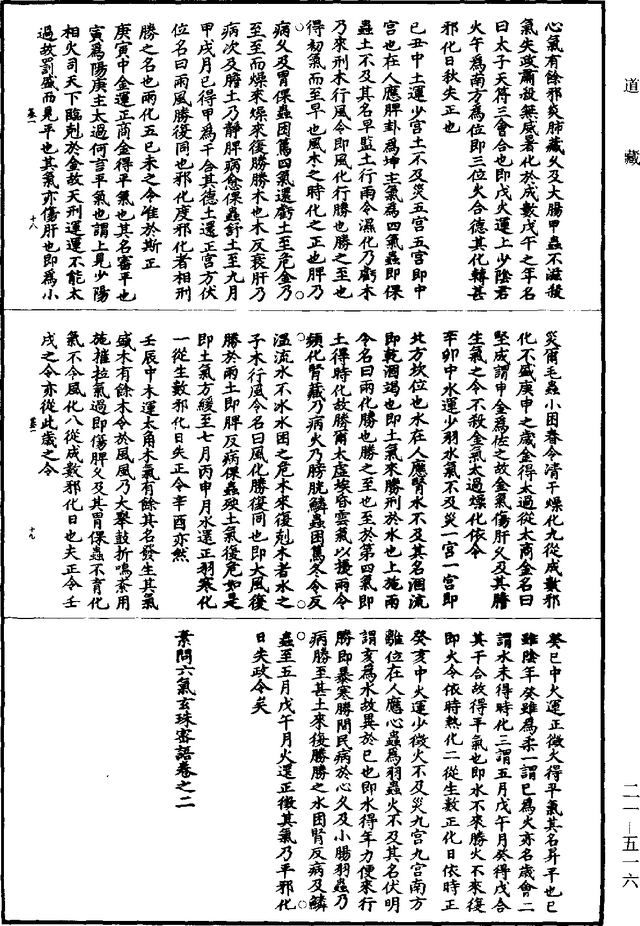 道藏
心氣有餘邪災肺藏乂及大腸甲蟲不滋殺
氣失政肅殺無威暑化於成數戊午之年名
曰太子天符三會合也即戊火運上少陰君
火午為南方為位即三位火合德其化轉甚
邪化日秋失正也
己丑中土運少宮土不及災五宮五宮即中
宮也在人應脾卦為坤主氣為四氣蟲即倮
蟲土不及其名早監土行雨令濕化乃虧木
乃來刑木行風令即風化行勝也勝之至也
得初氣而至早也風木之時化之正也脾乃
病乂及胃倮蟲困篤四氣還虧土至危金乃
至至而燥來燥來復勝勝木也木反衰肝乃
病次及膽土乃靜脾病愈倮蟲舒土至九月
甲戌月已得甲為干合其德土還正宮方伏
位名曰雨風勝復同也邪化度邪化者相刑
勝之名也兩化五已未之令准於斯正
庚寅中金運正商金得平氣也其名審平也
寅為陽庚主太過何言平氣也謂上見少陽
相火司天下臨剋於金故天刑運運不能太
過故罰盛而見平也其氣亦傷肝也即為小
卷二 十八
災爾毛蟲小困春令清干燥化九從成數邪
化不盛庚申之歲金得太過從太商金名曰
堅成謂申金為佐之故金氣傷肝乂及其膽
生氣之令不殺金氣太過燥化依令
辛卯中水運少羽水氣不及災一宮一宮即
北方坎位也水在人應腎水不及其名涸流
即乾涸竭也即土氣來勝刑於水也上施雨
令名曰雨化勝也勝之至也至於第四氣即
土得時化故勝爾太虛埃昏雲氣以擾雨令
頻化腎藏乃病火乃膀胱鱗蟲困篤冬令反
溫流水不冰水困之危木來復剋木者水之
子木行風令名曰風化勝復同也即大風復
勝於雨土即脾反病倮蟲殃土氣復危如是
即土氣方緩至七月丙申月水還正羽寒化
一從生數邪化日失正令辛酉亦然
壬辰中木運太角木氣有餘其名發生其氣
盛木有餘木令於風風乃大舉鼓折鳴紊用
施摧拉氣過即傷脾乂及其胃倮蟲不育化
氣不令風化八從成數邪化日也失正令壬
戌之令亦從此歲之令
卷二 十九
癸巳中火運正徵火得平氣其名昇平也巳
雖陰年癸雖為柔一謂巳為火亦名歲會二
謂水未得時化三謂五月戊午月癸得戊合
其干合故得平氣也即水不來勝火不來復
即火令依時熱化二從生數正化日依時正
癸亥中火運少徵火不及災九宮九宮南方
離位在人應心蟲為羽蟲火不及其名伏明
謂亥為水故異於巳也即水得年力便來行
勝即暴寒勝間民病於心乂及小腸羽蟲乃
病勝至甚土來復勝勝之水困腎反病及鱗
蟲至五月戊午月火還正徵其氣乃平邪化
日失政令矣
素問六氣玄珠密語卷之二
二一—五一六